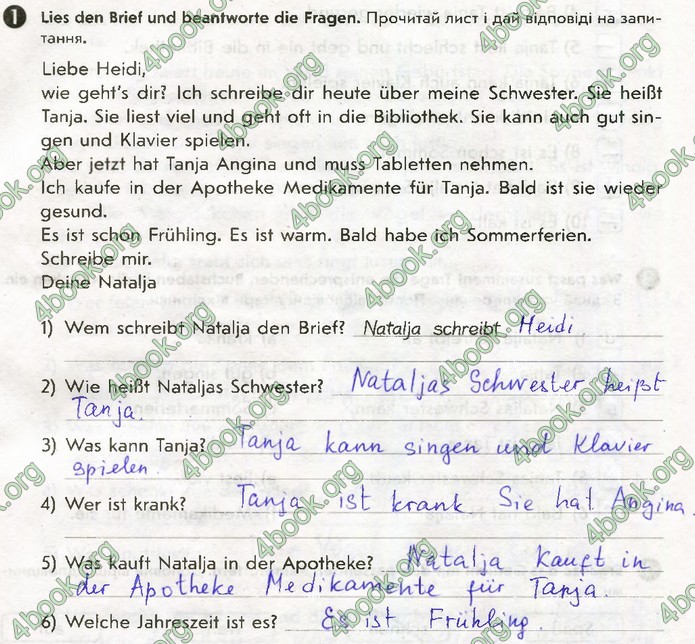 1 Lies den Brief und beantworte die Fragen. Прочитай лист і дай відповіді на запи-
тання.
Liebe Heidi,
wie geht's dir? Ich schreibe dir heute über meine Schwester. Sie heißt
Tanja. Sie liest viel und geht oft in die Bibliothek. Sie kann auch gut sin-
gen und Klavier spielen.
Aber jetzt hat Tanja Angina und muss Tabletten nehmen.
Ich kaufe in der Apotheke Medikamente für Tanja. Bald ist sie wieder
gesund.
Es ist schon Frühling. Es ist warm. Bald habe ich Sommerferien.
Schreibe mir.
Deine Natalja
1) Wem schreibt Natalja den Brief? Natalja schreibt Heidi
2) Wie heißt Nataljas Schwester? Nataljas Schwester heißt
Tanja.
3) Was kann Tanja? Tanja kann singen und Klavier
spielen.
4) Wer ist krank? Tanja ist krank Sie hat Angina.
5) Was kauft Natalja in der Apotheke? Natalja kauft in
der Apotheke Medikamente für Tanja.
6) Welche Jahreszeit ist es? Es ist Frühling.
4book.org